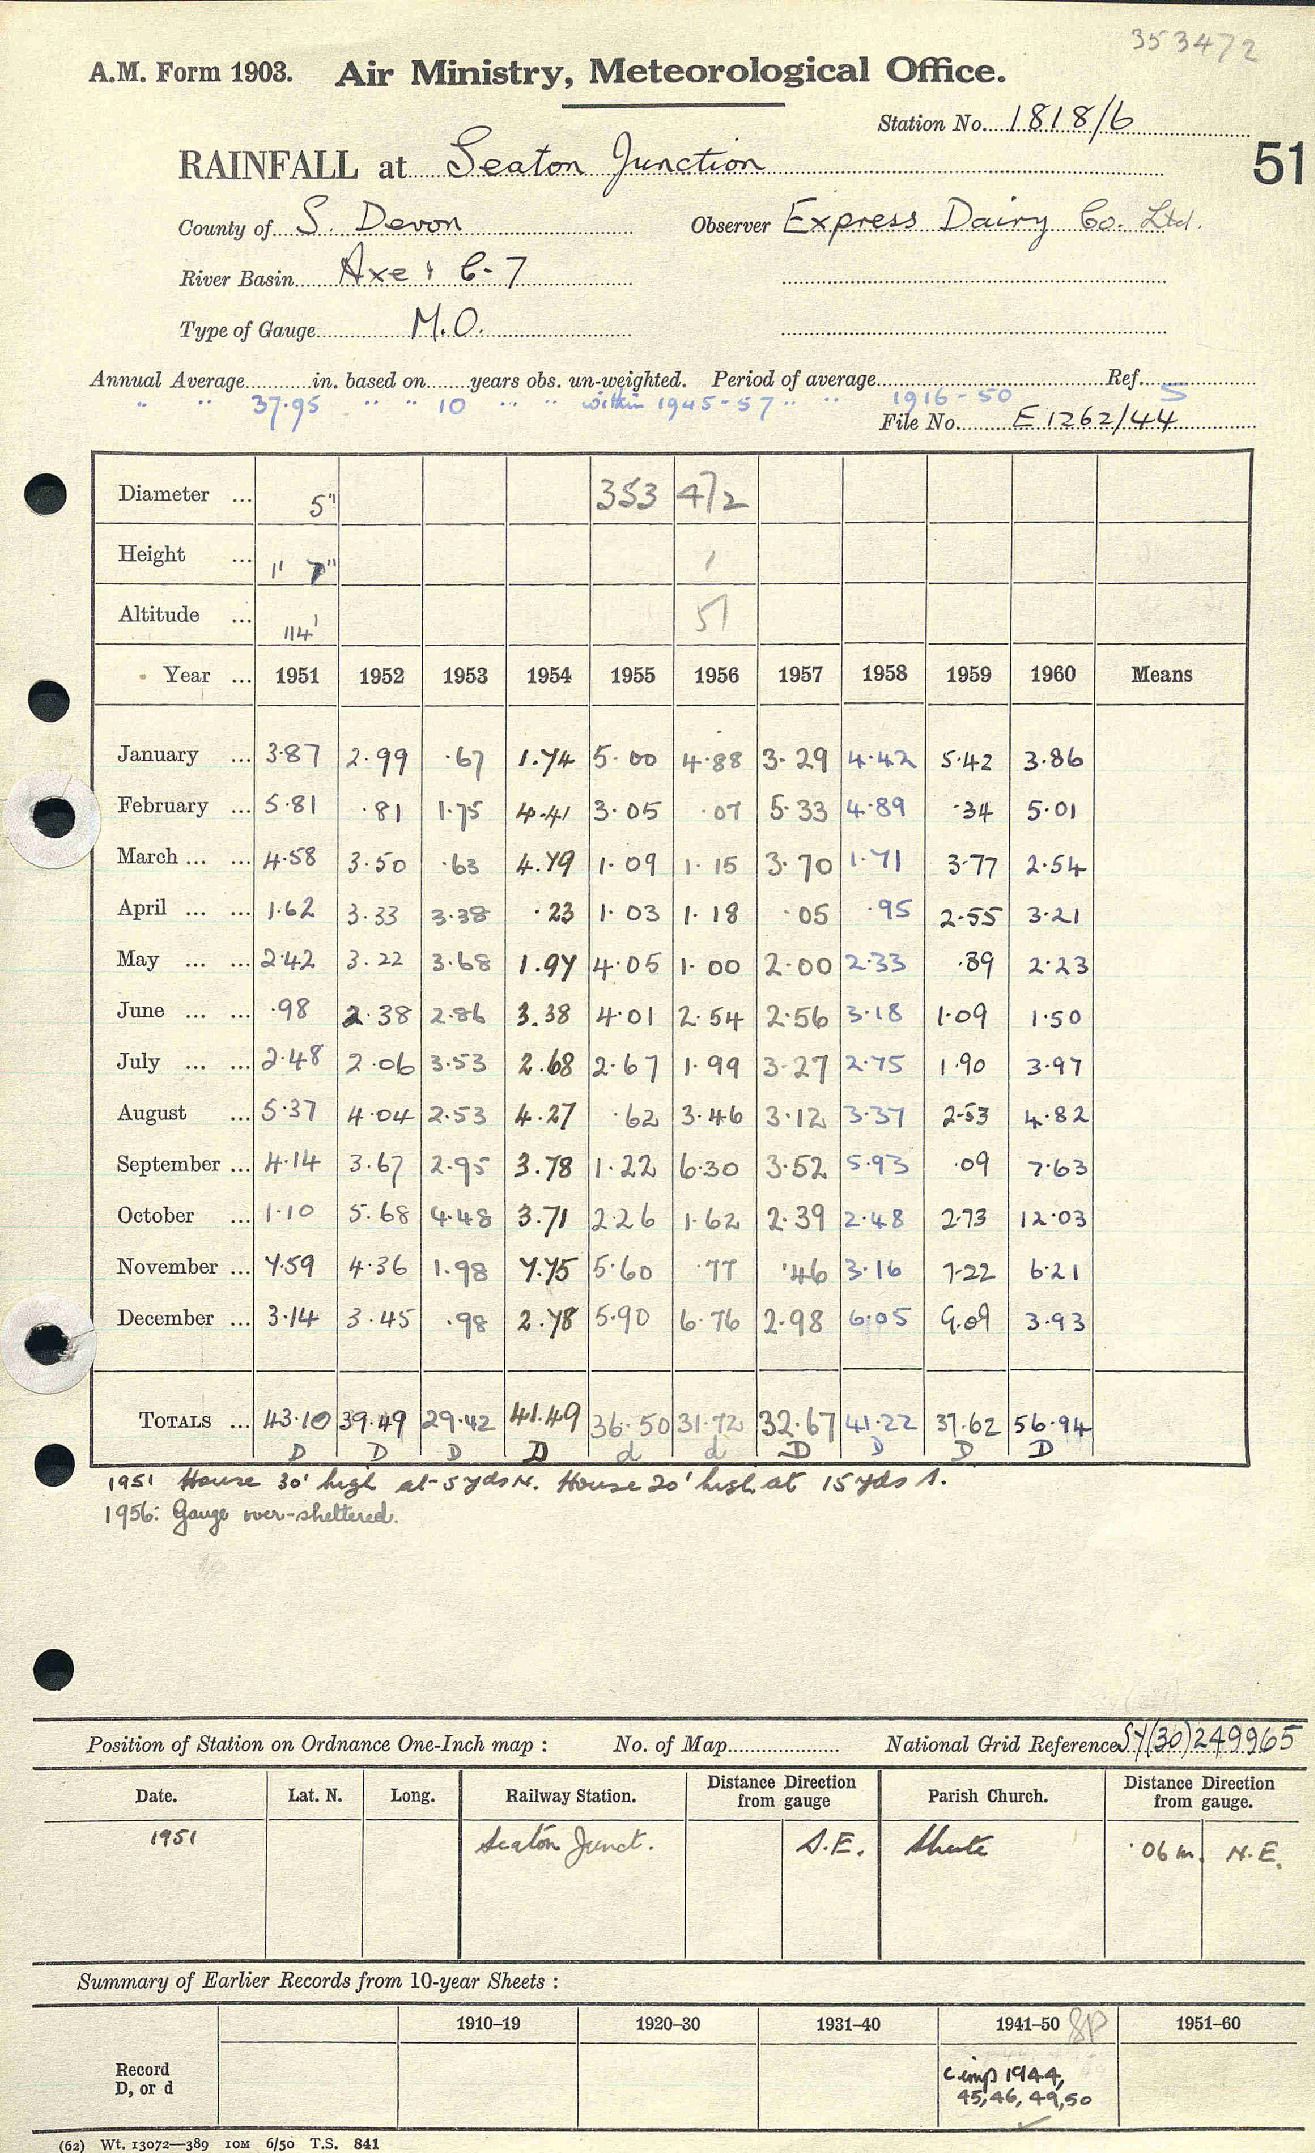 353472
A.M. Form 1903. Air Ministry, Meteorological Office.
Station No. 1818/6
51
RAINFALL at Seaton Junction
County of S. Devon Observer Express Dairy Co. Ltd.
River Basin Axe : 6-7
Type of Gauge M.O.
Annual Average in. based on years obs. un-weighted. Period of average Ref.
" " 37.95 " " 10 " " within 1945-57 " " 1916-50 S
File No. E1262/44
Diameter ... 5" 353 472
Height ... 1' 7" 1
Altitude ... 114' 51
Year ... 1951 1952 1953 1954 1955 1956 1957 1958 1959 1960 Means
January ... 3.87 2.99 .67 1.74 5.00 4.88 3.29 4.42 5.42 3.86
February ... 5.81 .81 1.75 4.41 3.05 .07 5.33 4.89 .34 5.01
March ... ... 4.58 3.50 .63 4.79 1.09 1.15 3.70 1.71 3.77 2.54
April ... ... 1.62 3.33 3.38 .23 1.03 1.18 .05 .95 2.55 3.21
May ... ... 2.42 3.22 3.68 1.97 4.05 1.00 2.00 2.33 .89 2.23
June ... ... .98 2.38 2.86 3.38 4.01 2.54 2.56 3.18 1.09 1.50
July ... ... 2.48 2.06 3.53 2.68 2.67 1.99 3.27 2.75 1.90 3.97
August ... 5.37 4.04 2.53 4.27 .62 3.46 3.12 3.37 2.53 4.82
September ... 4.14 3.67 2.95 3.78 1.22 6.30 3.52 5.93 .09 7.63
October ... 1.10 5.68 4.48 3.71 2.26 1.62 2.39 2.48 2.73 12.03
November ... 7.59 4.36 1.98 7.75 5.60 .77 .46 3.16 7.22 6.21
December ... 3.14 3.45 .98 2.78 5.90 6.76 2.98 6.05 9.09 3.93
TOTALS ... 43.10 39.49 29.42 41.49 36.50 31.72 32.67 41.22 37.62 56.94
D D D D d d D D D D
1951 House 30' high at 5 yds N. House 20' high at 15 yds S.
1956: Gauge over-sheltered.
Position of Station on Ordnance One-Inch map : No. of Map National Grid Reference SY(30)249965
Date. Lat. N. Long. Railway Station. Distance Direction from gauge Parish Church. Distance Direction from gauge.
1951 Seaton Junct. S.E. Shute .06 m. N.E.
Summary of Earlier Records from 10-year Sheets :
1910–19 1920–30 1931–40 1941–50 SP 1951–60
Record D, or d
comp 1944,
45, 46, 49, 50
(62) Wt. 13072—389 10M 6/50 T.S. 841